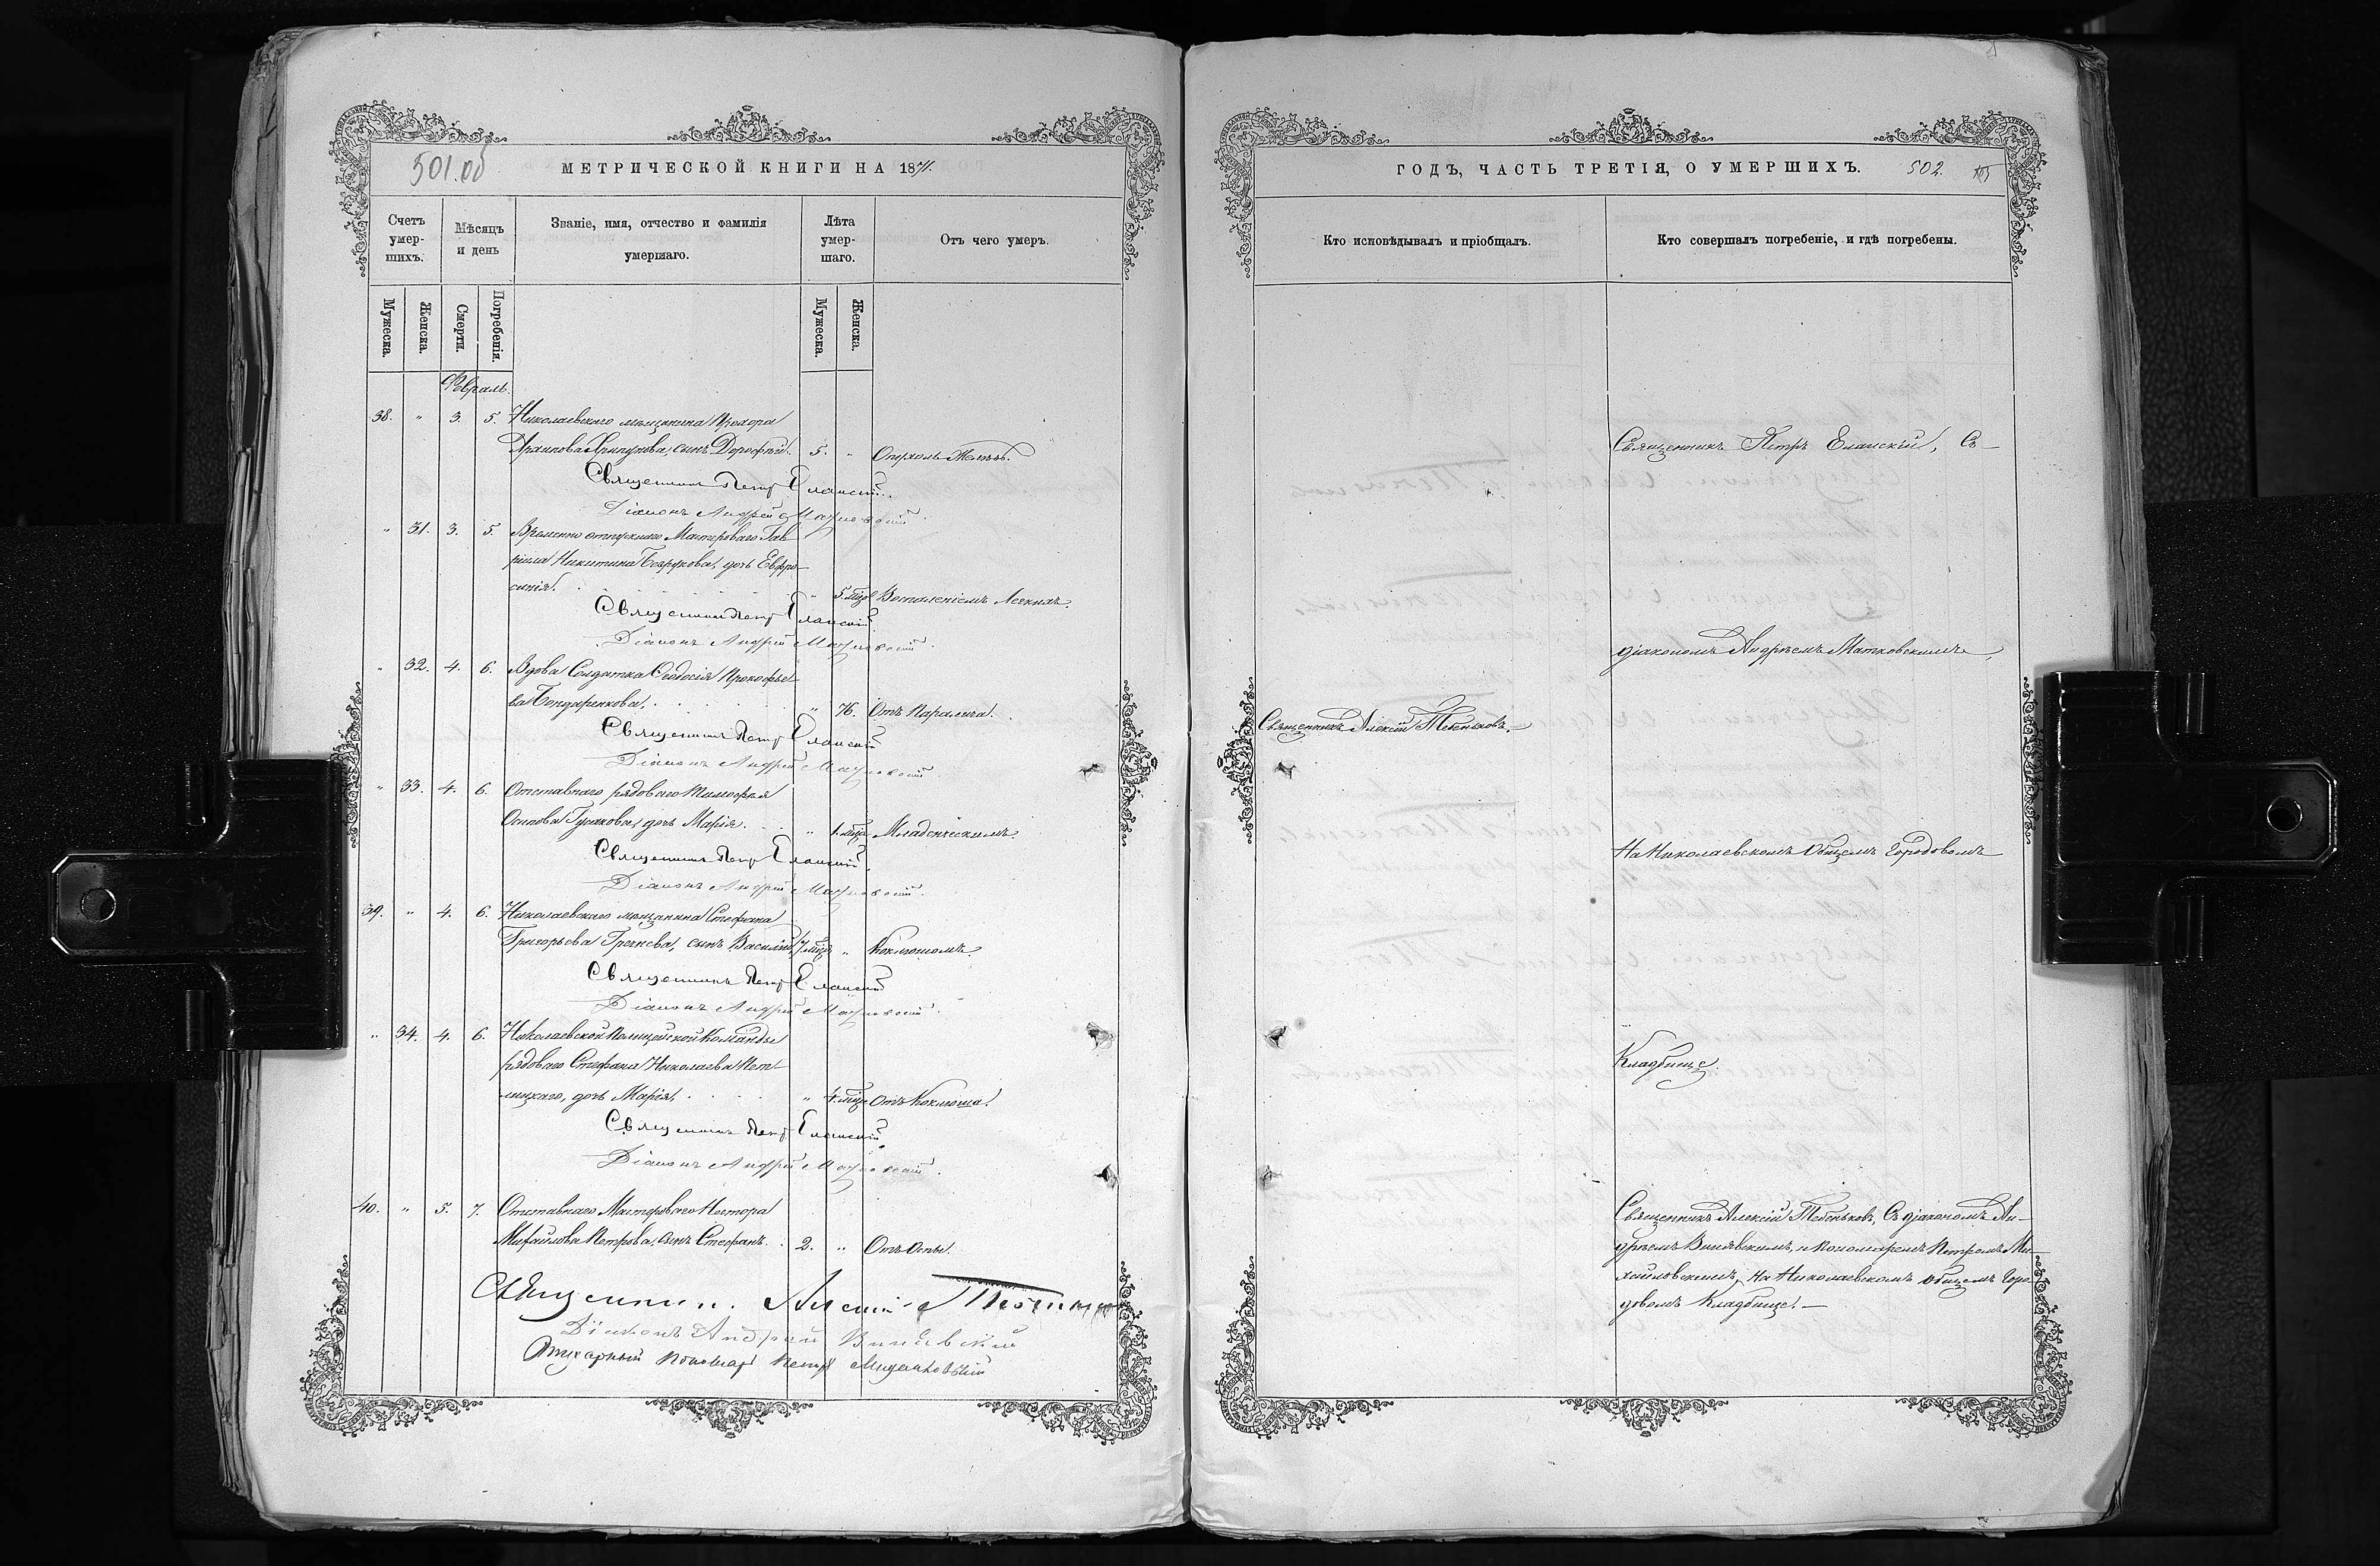 501.об
МЕТРИЧЕСКОЙ КНИГИ НА 1871.
Счетъ умер-шихъ.
Мѣсяцъ и день
Званіе, имя, отчество и фамилія умершаго.
Лѣта умер-шаго.
Отъ чего умеръ.
Мужеска.
Женска.
Смерти.
Погребенія.
Мужеска.
Женска.
Февраль.
38. " 3. 5. Николаевскаго мѣщанина Прохора
сынъ Дорофей. 5. "
Священникъ Петръ Еланскій.
Діаконъ Андрей Матковскій.
" 31. 3. 5. Временно отпускнаго Мастероваго Гав-
ріила Никитина дочь Евфро-
синія. " 5. мѣс. Воспаленіемъ Легкихъ.
Священникъ Петръ Еланскій
Діаконъ Андрей Матковскій.
" 32. 4. 6. Вдова Солдатка Ѳеодосія Прокофье-
ва Бондаренкова. " 76. Отъ Паралича.
Священникъ Петръ Еланскій
Діаконъ Андрей Матковскій
" 33. 4. 6. Отставнаго рядоваго Тимофея
Осипова дочь Марія. " 1. мѣс. Младенческимъ.
Священникъ Петръ Еланскій
Діаконъ Андрей Матковскій.
39. " 4. 6. Николаевскаго мѣщанина Стефана
Григорьева сынъ Василій. 7. мѣс. " Коклюшомъ.
Священникъ Петръ Еланскій
Діаконъ Андрей Матковскій.
" 34. 4. 6. Николаевской Полицейской Команды
рядоваго Стефана Николаева
дочь Марія. " 4. мѣс. Отъ Коклюша.
Священникъ Петръ Еланскій
Діаконъ Андрей Матковскій.
40. " 5. 7. Отставнаго Мастероваго Нестора
Михайлова Петрова, сынъ Стефанъ. 2. " Отъ Оспы.
Священникъ Алексій
Діаконъ Андрей
Пономарь Петръ
ГОДЪ, ЧАСТЬ ТРЕТІЯ, О УМЕРШИХЪ.
502.
105
Кто исповѣдывалъ и пріобщалъ.
Кто совершалъ погребеніе, и гдѣ погребены.
Священникъ Петръ Еланскій, Съ
діакономъ Андреемъ Матковскимъ,
Священникъ Алексій Тебеньковъ.
На Николаевскомъ Общемъ Городовомъ
Кладбище.
Священникъ Алексій Тебеньковъ, Съ діакономъ Ан-
дреемъ и Пономаремъ Петромъ Ми-
хайловскимъ, На Николаевскомъ Общемъ Горо-
довомъ Кладбище.